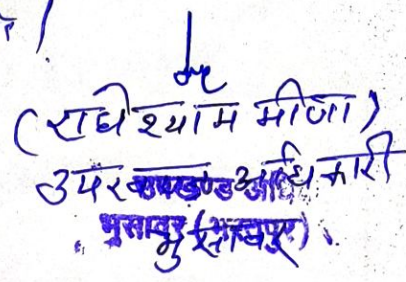 (राधेश्याम मीणा)
उपखण्ड अधिकारी
भुसावर (भरतपुर)
भुसावर